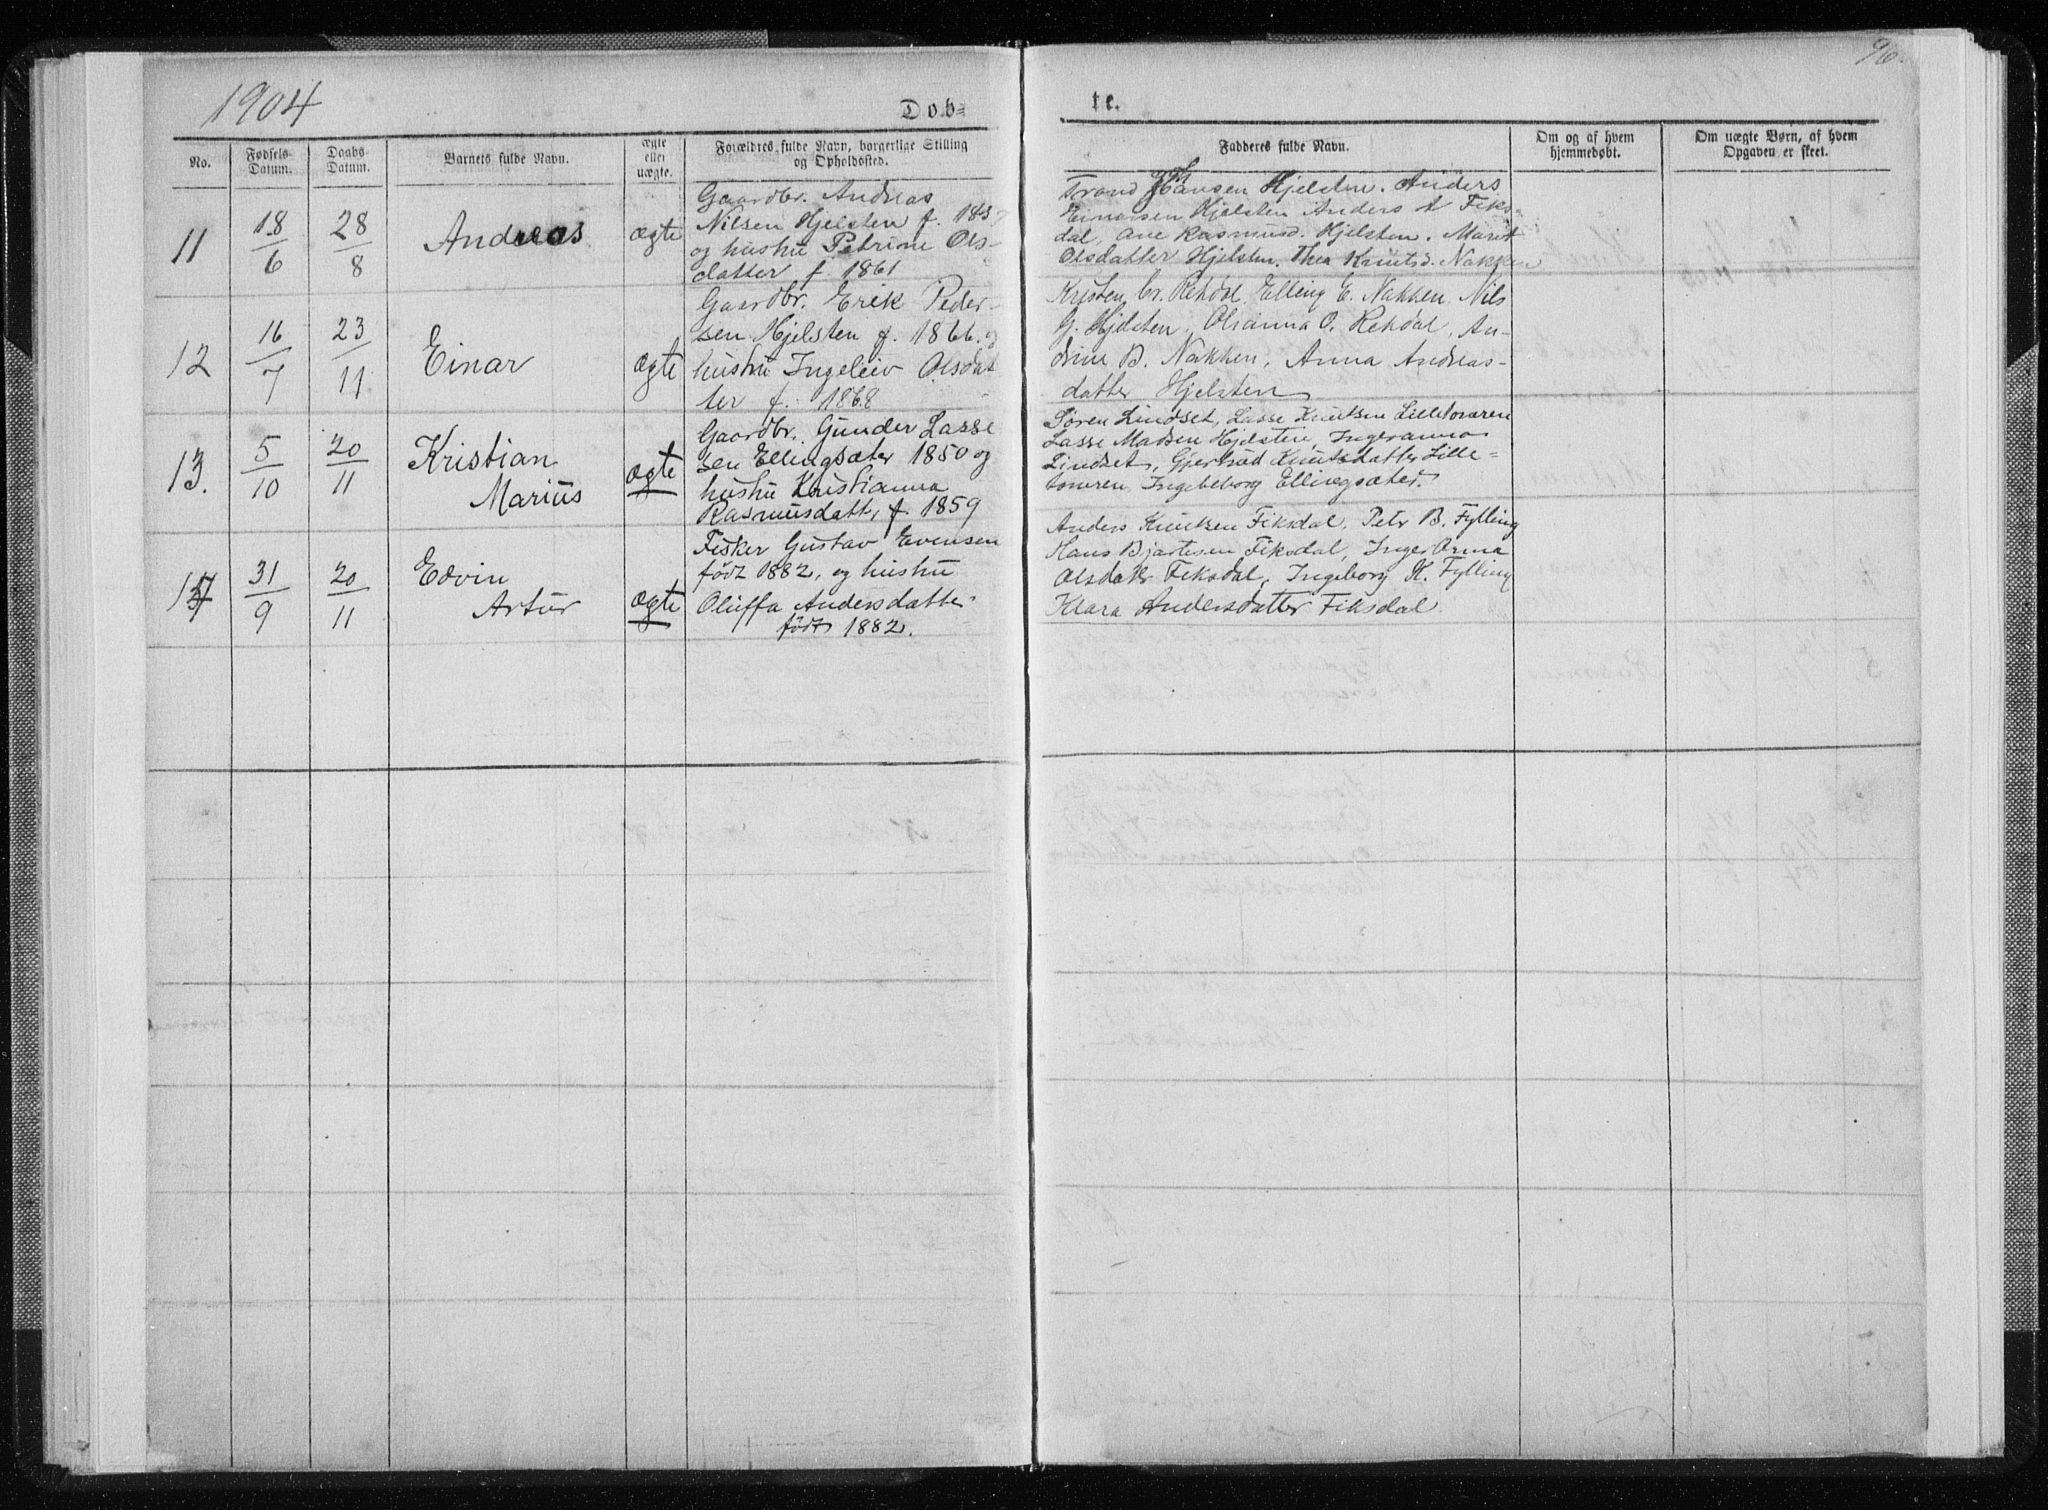 1904
96.
Døb=
te.
No.
Fødsels
Datum.
Daabs
Datum.
Barnets fulde Navn.
ægte
eller
uægte.
Forældres fulde Navn, borgerlige Stilling
og Opholdssted.
Fadderes fulde Navn.
Om og af hvem
hjemmedøbt.
Om uægte Børn, af hvem
Opgaven er skeet.
11
18/6
28/8
Andreas
ægte
Gaardbr. Andreas
Nilsen Hjelsten f. 185
og hustru Petrine Ols-
datter f. 1861
Trond Hansen Hjelsten. Anders
Einarsen Hjelsten Anders A Fiks-
dal, Ane Rasmusd. Hjelsten. Marit
Olsdatter Hjelsten. Thea Knutsd. Nakken
12
16/7
23/11
Einar
ægte
Gaardbr. Erik Peder-
sen Hjelsten f. 1866. og
hustru Ingeleiv Olsdat
ter f. 1868
Kristen Cr. Rekdal. Elling E. Nakken. Nils
G. Hjelsten. Olianna O. Rekdal. An-
drine B. Nakken. Anna Andreas-
datter Hjelsten
13.
5/10
20/11
Kristian
Marius
ægte
Gaardbr. Gunder Lasse
sen Ellingsæter 1850 og
hustru Kristianna
Rasmusdatt. f. 1859
Søren Lindset, Lasse Knutsen Lilletomren
Lasse Madsen Hjelsten, Ingeranna
Lindset, Gjertrud Knutsdatter Lille=
tomren, Ingebeborg Ellingsæter.
14
31/9
20/11
Edvin
Artur
ægte
Fisker Gustav Evensen
født 1882, og hustru
Oluffa Andersdatter
født 1882.
Anders Knutsen Fiksdal, Petr B. Fylling
Hans Bjartesen Fiksdal, Inger Anna
Olsdatr Fiksdal, Ingeborg K. Fylling
Klara Andersdatter Fiksdal